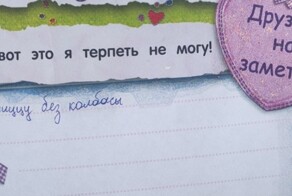 вот это я терпеть не могу!
Друз
на
замет
пиццу без колбасы